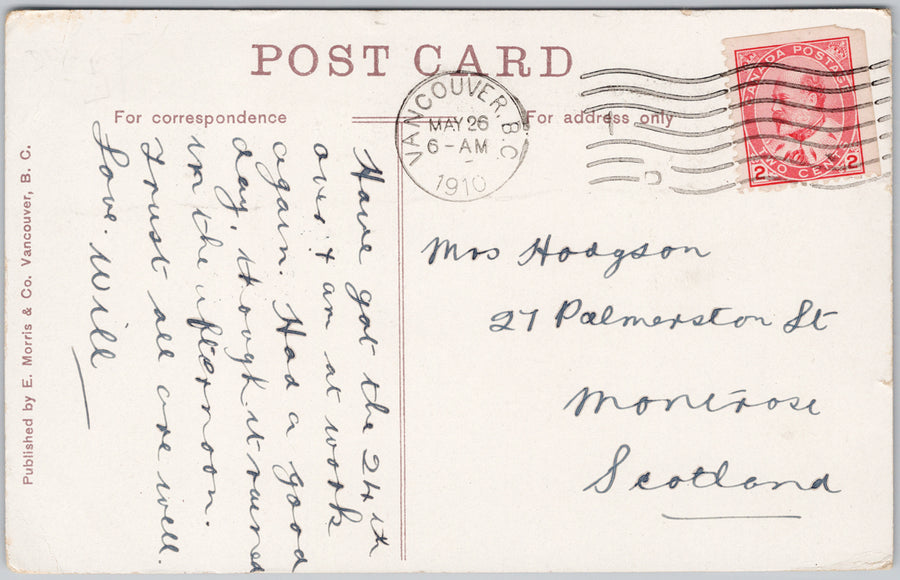 POST CARD
For correspondence
For address only
VANCOUVER, B.C.
MAY 26
6-AM
1910
CANADA POSTAGE
2 2
TWO CENTS
Have got the 24th
over & am at work
again. Had a good
day, though it rained
in the afternoon.
Trust all are well.
Love. Will
Mrs Hodgson
27 Palmerston St
Montrose
Scotland
Published by E. Morris & Co. Vancouver, B. C.